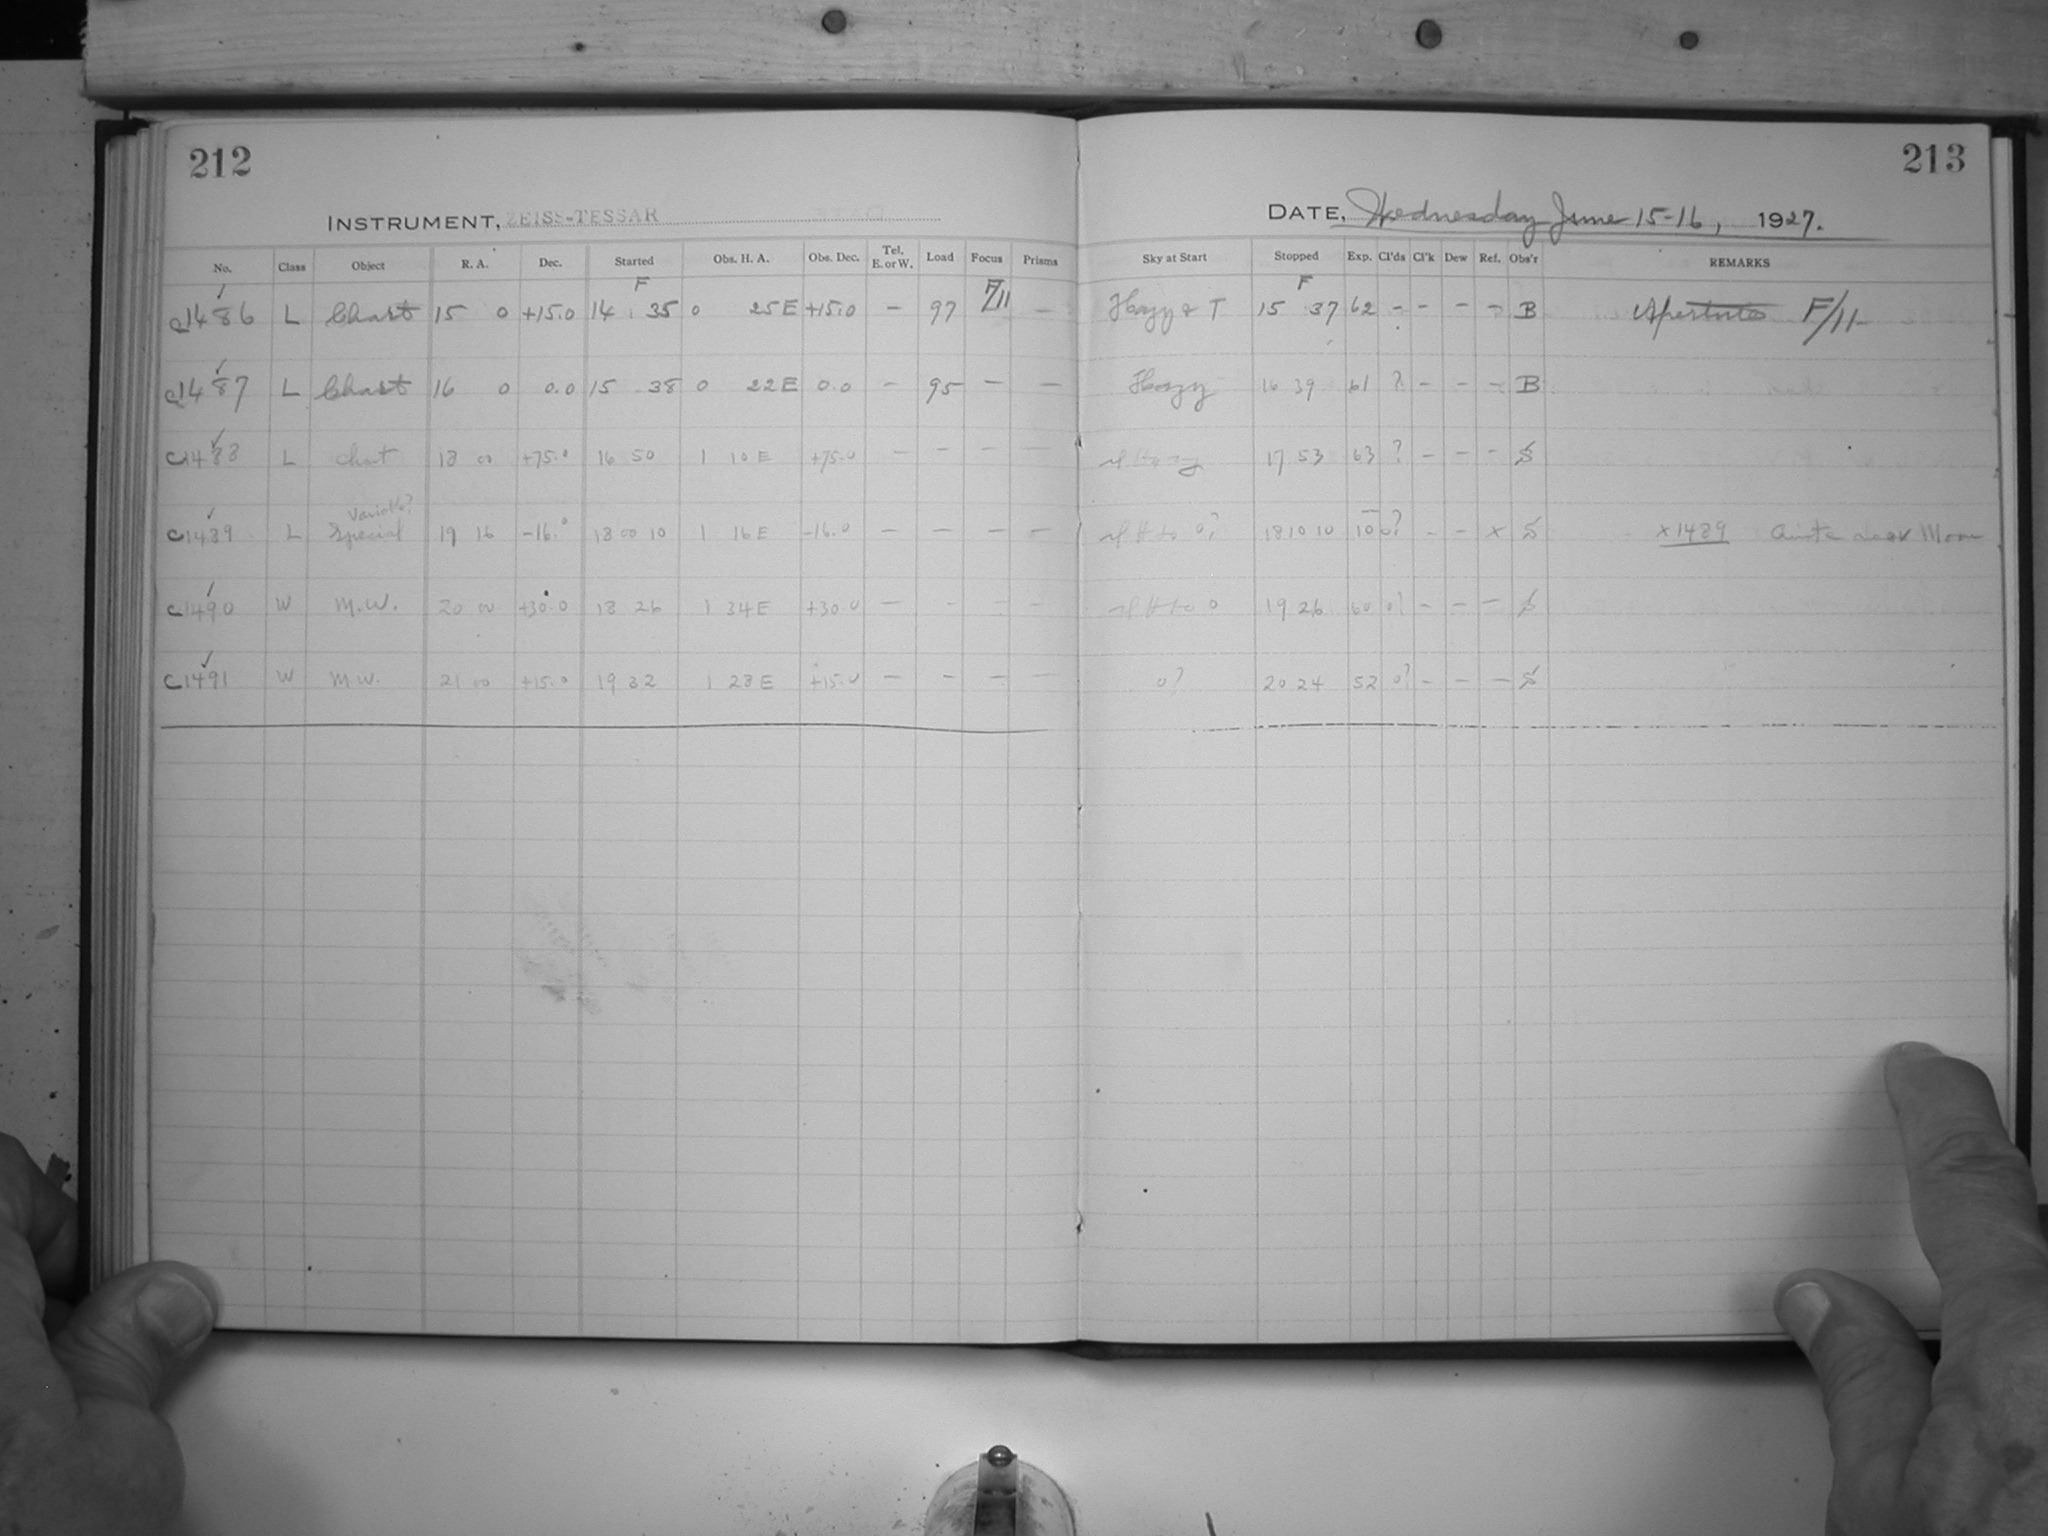 212
213
INSTRUMENT, ZEISS-TESSAR
DATE, Wednesday June 15-16, 1927.
No. Class Object R. A. Dec. Started Obs. H. A. Obs. Dec. Tel. E. or W. Load Focus Prisms Sky at Start Stopped Exp. Cl'ds Cl'k Dew Ref. Obs'r REMARKS
F F
c1486 L Chart 15 0 +15.0 14 35 0 25 E +15.0 - 97 F/11 - Hazy & T 15 37 62 - - - - B Apertute F/11
c1487 L Chart 16 0 0.0 15 38 0 22 E 0.0 - 95 - - Hazy 16 39 61 ? - - - B
c1488 L Chart 18 00 +75.0 16 50 1 10 E +75.0 - - - - 17 53 63 ? - - - S
Variable?
c1489 L Special 19 16 -16.0 18 00 10 1 16 E -16.0 - - - - 0? 18 10 10 10 0? - - x S x1489 Quite near Moon
c1490 W M.W. 20 00 +30.0 18 26 1 34 E +30.0 - - - - 0 19 26 60 0? - - - S
c1491 W M.W. 21 00 +15.0 19 32 1 28 E +15.0 - - - - 0? 20 24 52 0? - - - S